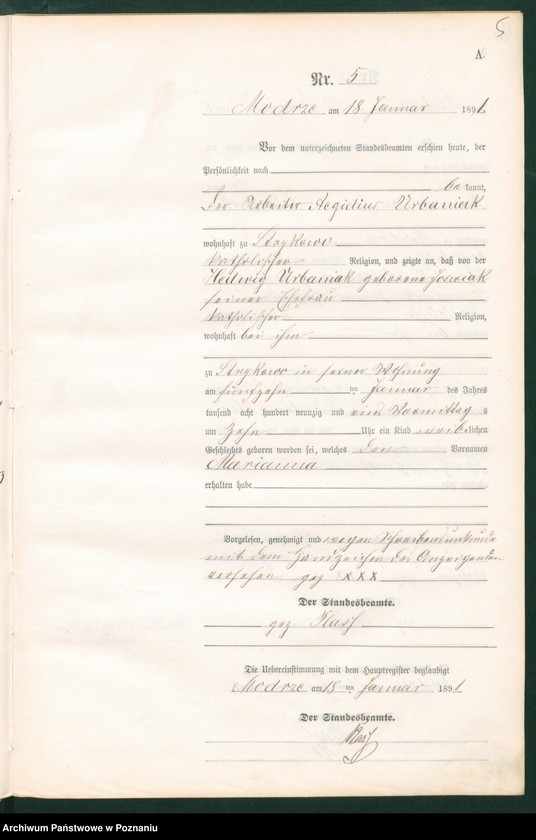 5
A
Nr. 5
Modrze am 18 Januar 1891.
Vor dem unterzeichneten Standesbeamten erschien heute, der
Persönlichkeit nach
be kannt,
der Arbeiter Aegidius Urbaniak
wohnhaft zu Strykowo
katholischer Religion, und zeigte an, daß von der
Hedwig Urbaniak geborene
seiner Ehefrau
katholischer Religion,
wohnhaft bei ihm
zu Strykowo in seiner Wohnung
am fünfzehn ten Januar des Jahres
tausend acht hundert neunzig und eins Vormittag s
um Zehn Uhr ein Kind weiblichen
Geschlechts geboren worden sei, welches den Vornamen
Marianna
erhalten habe
Vorgelesen, genehmigt und wegen Schreibensunkunde
mit dem Handzeichen des Anzeigenden
versehen gez x x x
Der Standesbeamte.
gez.
Die Uebereinstimmung mit dem Hauptregister beglaubigt
Modrze am 18 ten Januar 1891
Der Standesbeamte.
Archiwum Państwowe w Poznaniu